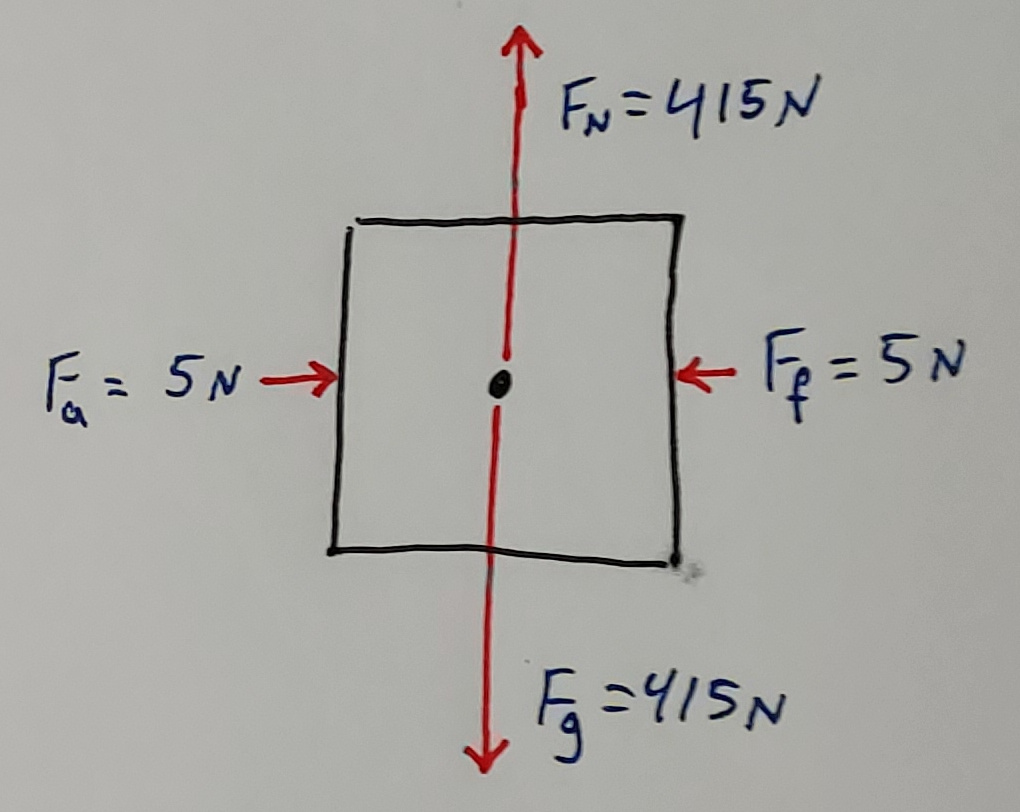 F_N = 415 N
F_a = 5 N
F_f = 5 N
F_g = 415 N